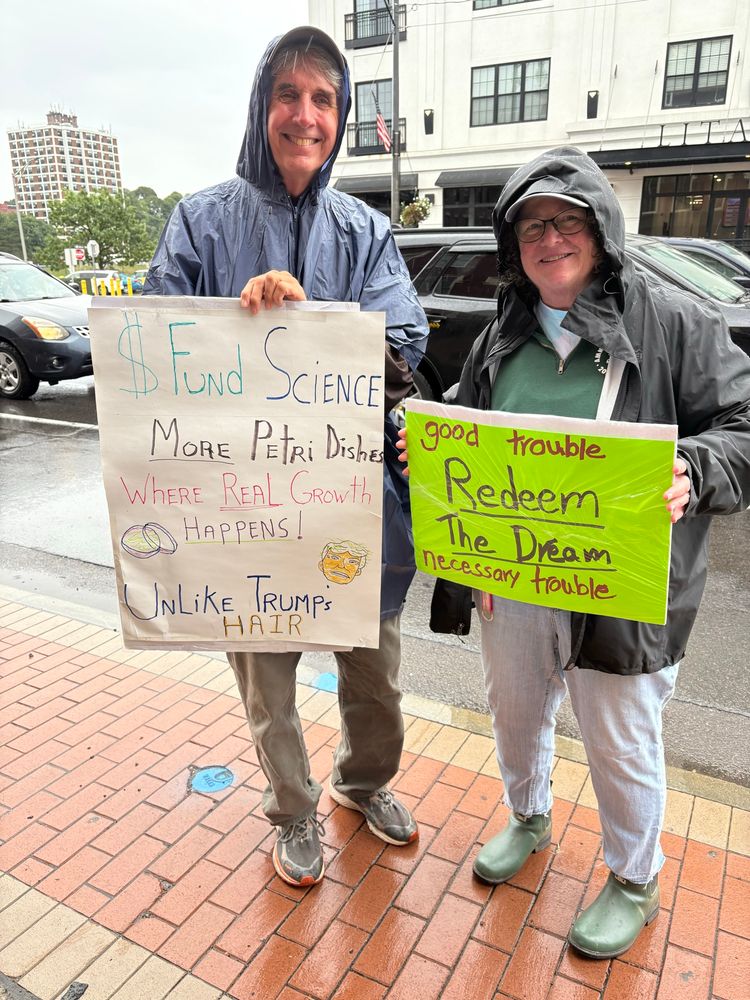 $ Fund Science
More Petri Dishes
Where Real Growth
Happens!
Unlike Trump's
Hair
good trouble
Redeem
The Dream
necessary trouble